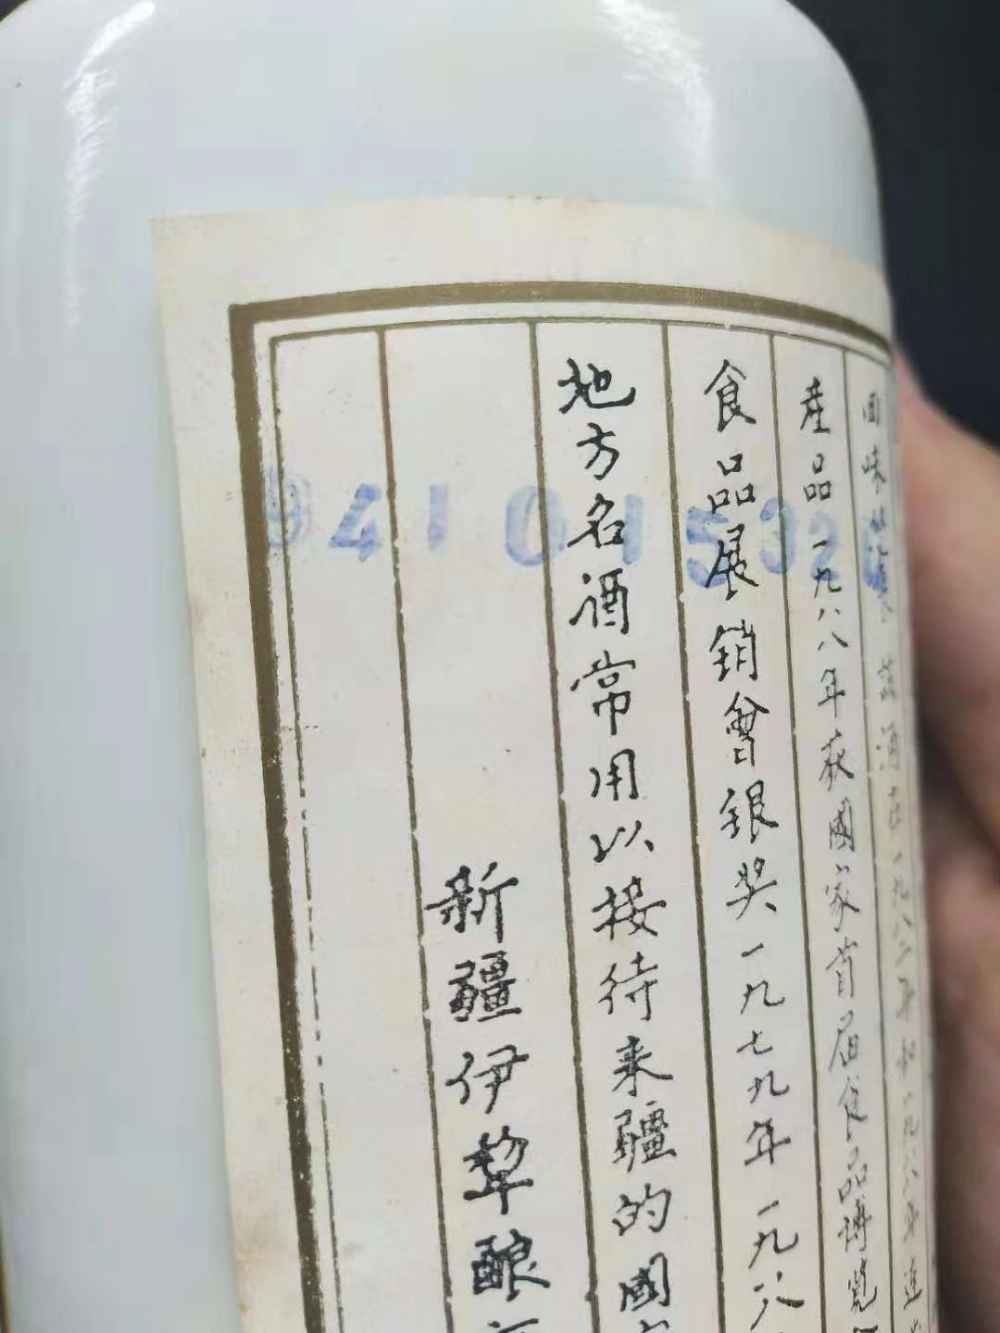 回味
酒在一九八二年和一九八六年連
産品一九八八年获國家首届食品博覽
食品展销會银奖一九七九年一九八
地方名酒常用以接待来疆的國
新疆伊犂酿
94101